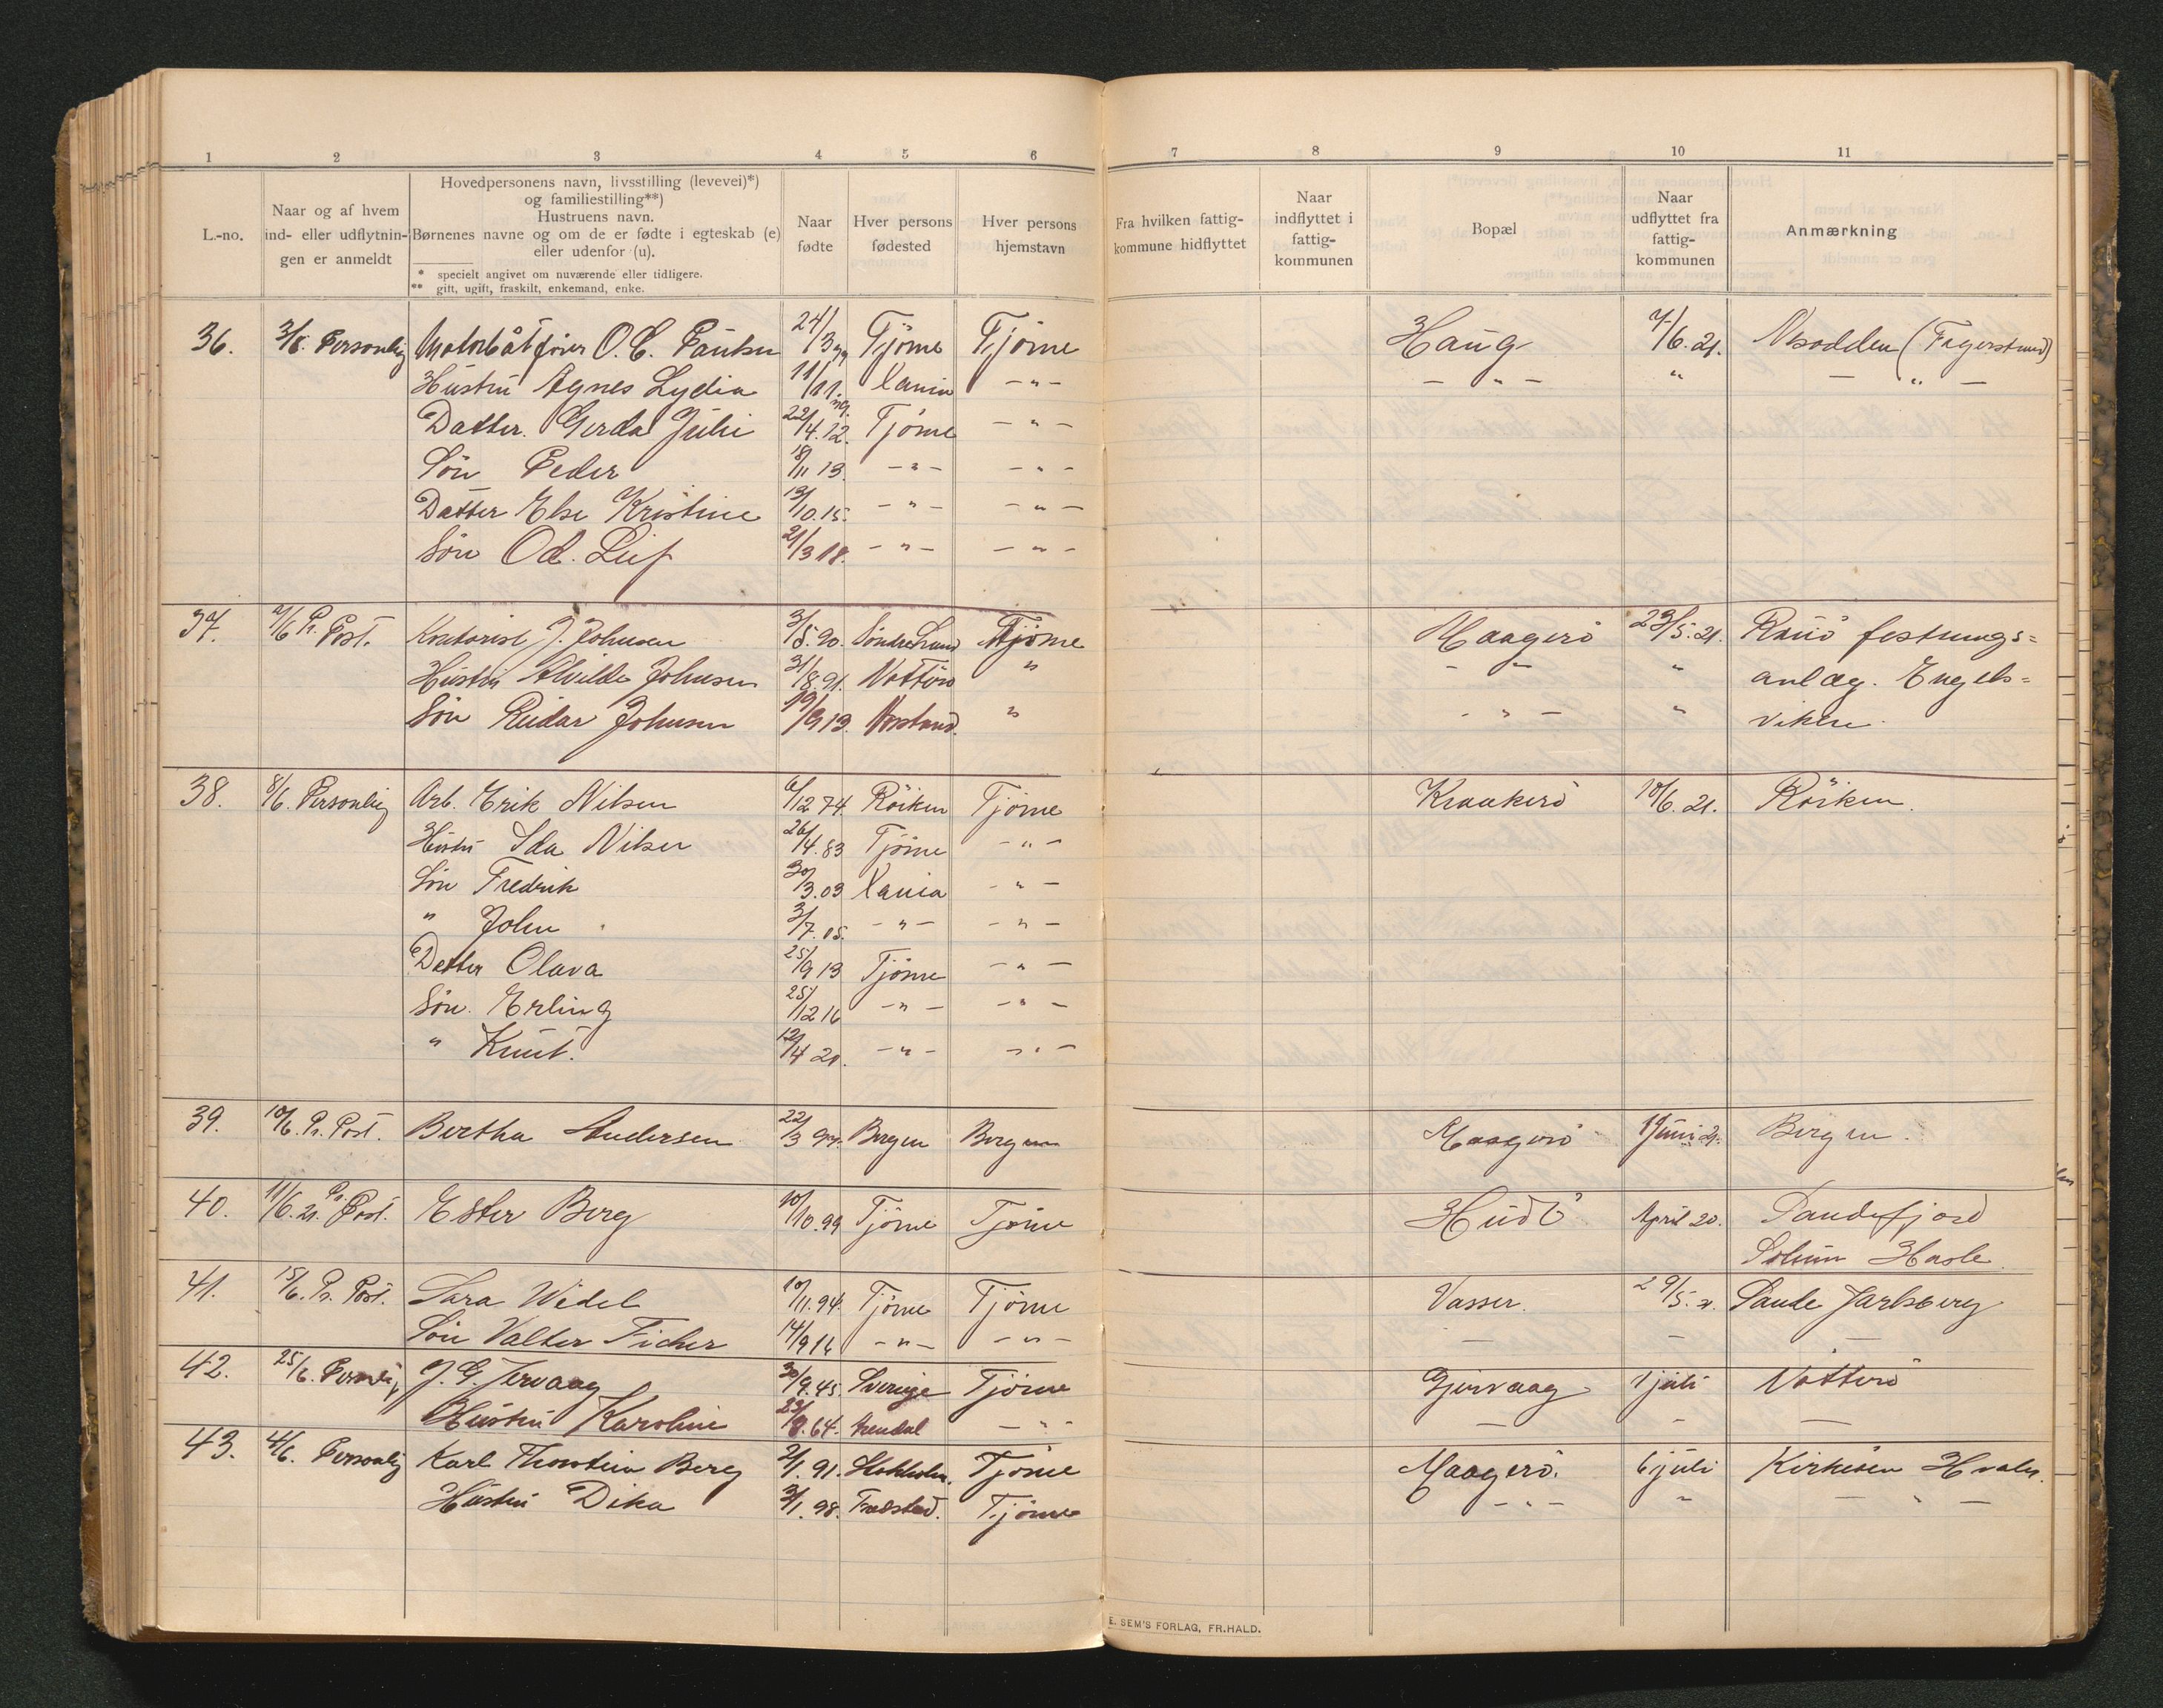 1 2 3 4 5 6 7 8 9 10 11
L.-no.
Naar og af hvem
ind- eller udflytnin-
gen er anmeldt
Hovedpersonens navn, livsstilling (levevei)*)
og familiestilling**)
Hustruens navn.
Børnenes navne og om de er fødte i egteskab (e)
eller udenfor (u).
* specielt angivet om nuværende eller tidligere.
** gift, ugift, fraskilt, enkemand, enke.
Naar
fødte
Hver persons
fødested
Hver persons
hjemstavn
Fra hvilken fattig-
kommune hidflyttet
Naar
indflyttet i
fattig-
kommunen
Bopæl
Naar
udflyttet fra
fattig-
kommunen
Anmærkning
36. 3/6. Personlig Motorbåtfører O. C. Paulsen 24/3 Tjöme Tjöme Haug 7/6. 21. Nesodden (Fagerstrand)
Hustru Agnes Lydia 11/11. Xania - " - - " - " - " -
Datter. Gerda Julie 22/4. 12. Tjöme - " -
Sön Peder 18/11 13. - " - - " -
Datter Else Kristine 13/10. 15. - " - - " -
Sön Od. Leif 21/3 18. - " - - " -
37. 7/6 Pr. Post. Kontorist J. Johnsen 3/5. 90. Söndre Land Tjöme Maagerö 23/5. 21. Rauö festnings=
Hustru Alvilde Johnsen 31/8. 91. Nötterö " - " - " anlæg. Engels=
Sön Reidar Johnsen 19/9 13. " - " - " viken.
38. 8/6. Personlig Arb. Erik Nilsen 6/12 74. Röiken Tjöme Kraakerö 10/6. 21. Röiken.
Hustru Ida Nilsen 26/4. 83 Tjöme - " -
Sön Fredrik 30/3. 03 Xania - " -
" John 3/7. 05. - " - - " -
Datter Olava 25/9 13 Tjöme - " -
Sön. Erling 25/12 16 - " - - " -
" Knut. 12/4 20. - " - - " -
39. 10/6. Pr. Post. Bertha Andersen 22/3 97. Bergen Bergen Maagerö 1 Juni 21. Bergen.
40. 11/6. 21. Pr. Post. Ester Berg 10/10. 99 Tjöme Tjöme Hudö April 20. Sandefjord
Solum Hasle.
41. 15/6. Pr. Post. Sara Wedel 10/11. 94. Tjöme Tjöme Vasser. 29/5. 21. Sande Jarlsberg
Sön Valter Ficher 14/9 16 - " - - " - - - -
42. 25/6. Personlig J. G. Jervaag 30/9. 45. Sverige Tjöme Gjervaag 1 juli Nötterö
Hustru Karoline 23/8. 64. Arendal - " - - - -
43. 4/6. Personlig Karl Thorstein Berg 2/1. 91. Stokholm. Tjöme Maagerö. 6 juli Kirköen Hvaler.
Hustru Dika 3/1. 98. Tjöme - " - " - " -
E. SEM'S FORLAG, FR.HALD.